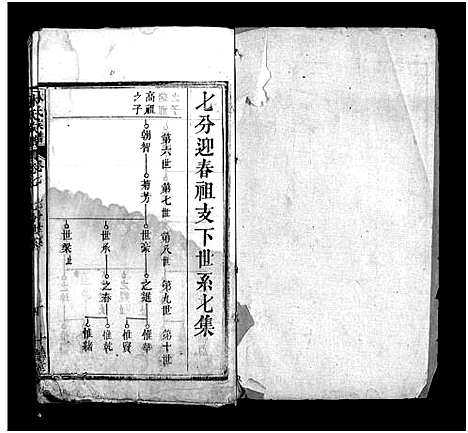 七分迎春祖支下世系七集
第六世 第七世 第八世 第九世 第十世
高祖之子
朝智 菊芳 世豪 之選 惟華
惟賢
世承 之春 惟乾
惟緒
世榮 止